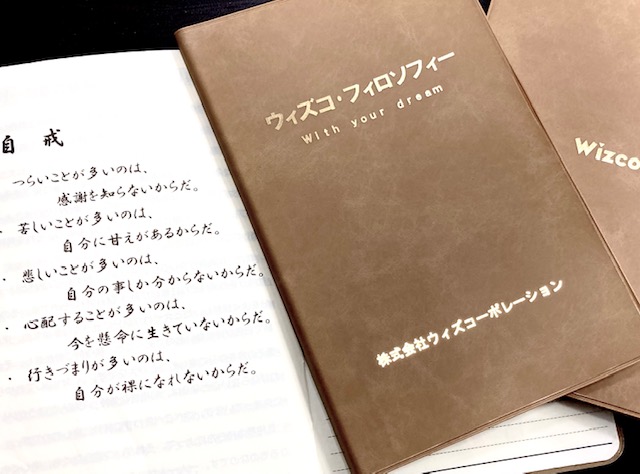 自戒
つらいことが多いのは、
感謝を知らないからだ。
・ 苦しいことが多いのは、
自分に甘えがあるからだ。
・ 悲しいことが多いのは、
自分の事しか分からないからだ。
・ 心配することが多いのは、
今を懸命に生きていないからだ。
・ 行きづまりが多いのは、
自分が裸になれないからだ。
ウィズコ・フィロソフィー
With your dream
株式会社ウィズコーポレーション
Wizco